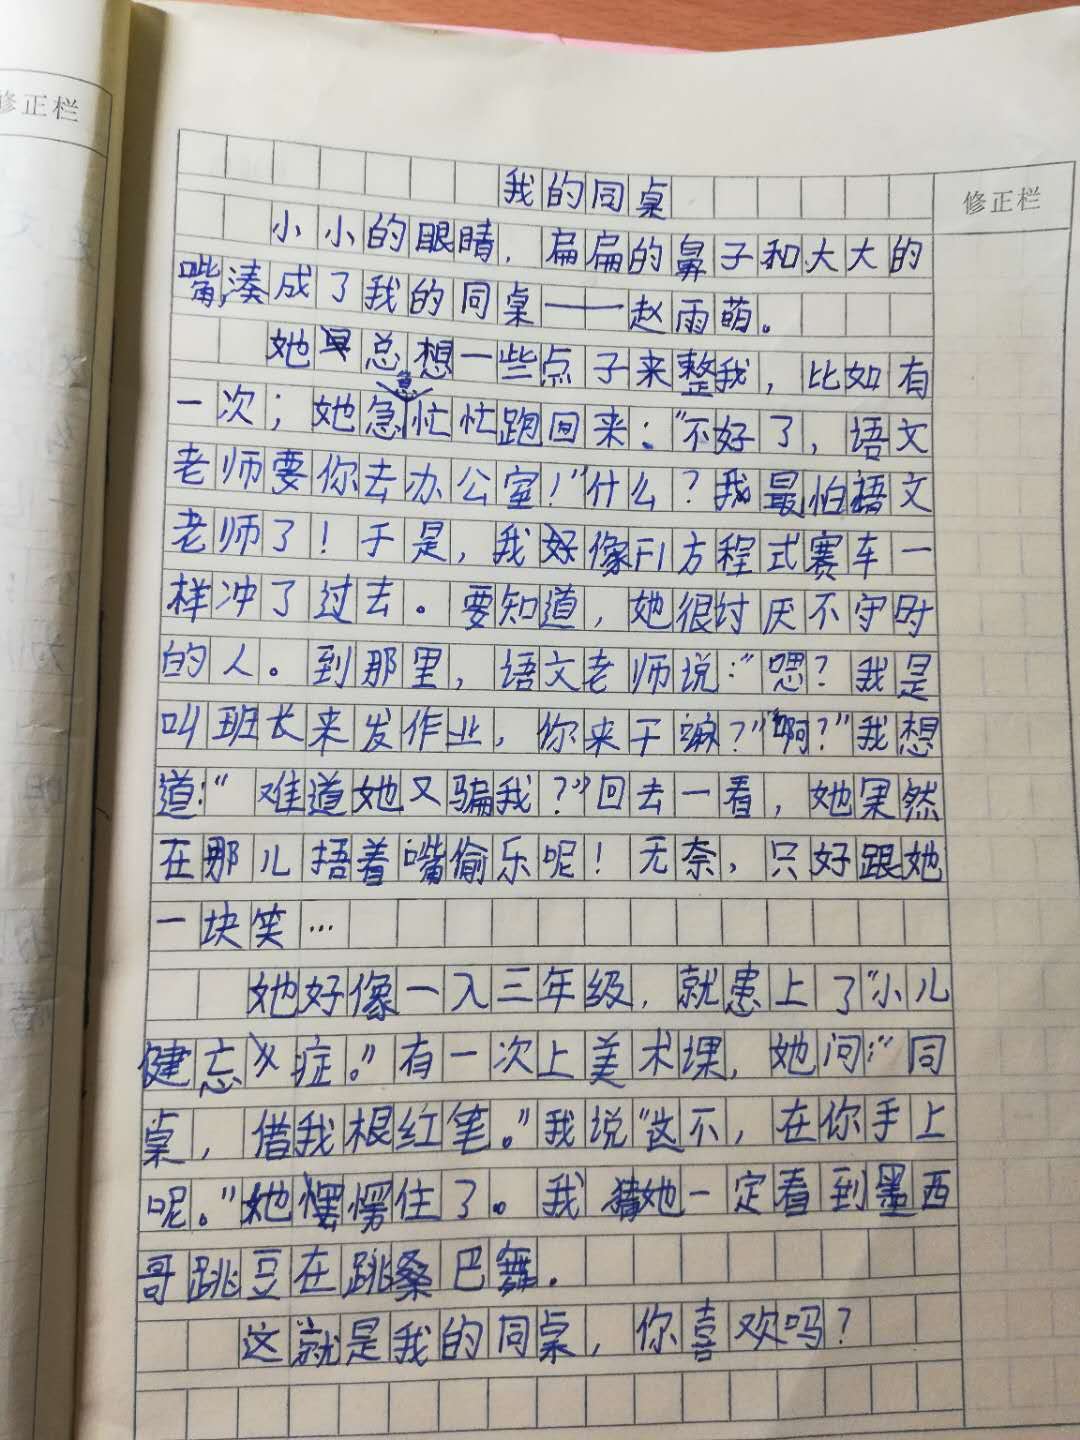 修正栏
修正栏
我的同桌
小小的眼睛，扁扁的鼻子和大大的
嘴，凑成了我的同桌——赵雨萌。
她总想一些点子来整我，比如有
一次；她急急忙忙跑回来：“不好了，语文
老师要你去办公室！”“什么？我最怕语文
老师了！于是，我好像F1方程式赛车一
样冲了过去。要知道，她很讨厌不守时
的人。到那里，语文老师说：“嗯？我是
叫班长来发作业，你来干嘛？”“啊？”我想
道：“难道她又骗我？”回去一看，她果然
在那儿捂着嘴偷乐呢！无奈，只好跟她
一块笑…
她好像一入三年级，就患上了“小儿
健忘症。”有一次上美术课，她问：“同
桌，借我根红笔。”我说“这不，在你手上
呢。”她愣住了。我猜她一定看到墨西
哥跳豆在跳桑巴舞.
这就是我的同桌，你喜欢吗？